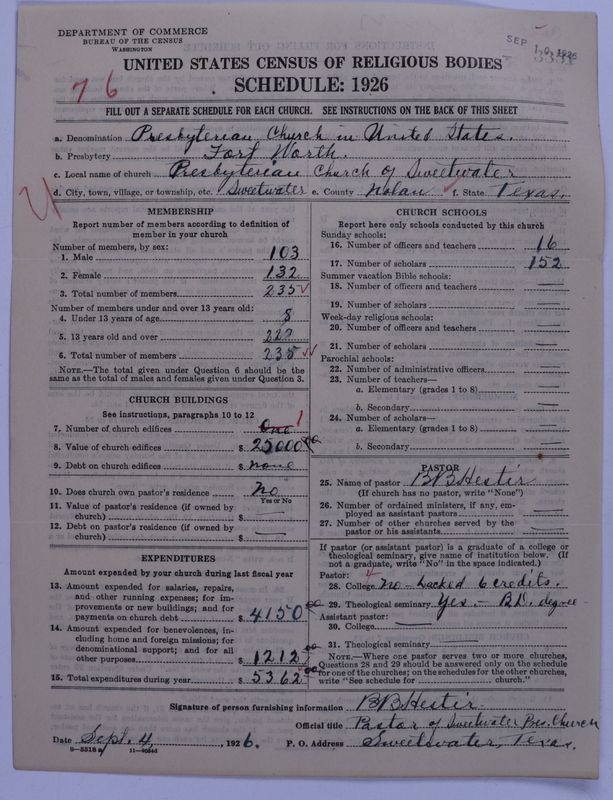 DEPARTMENT OF COMMERCE
BUREAU OF THE CENSUS
WASHINGTON
SEP 10, 1926
UNITED STATES CENSUS OF RELIGIOUS BODIES
SCHEDULE: 1926
7 6
FILL OUT A SEPARATE SCHEDULE FOR EACH CHURCH. SEE INSTRUCTIONS ON THE BACK OF THIS SHEET
a. Denomination Presbyterian Church in United States.
b. Presbytery Fort Worth.
c. Local name of church Presbyterian Church of Sweetwater
d. City, town, village, or township, etc. Sweetwater e. County Nolan f. State Texas.
MEMBERSHIP
Report number of members according to definition of
member in your church
Number of members, by sex:
1. Male 103
2. Female 132
3. Total number of members 235
Number of members under and over 13 years old:
4. Under 13 years of age 8
5. 13 years old and over 227
6. Total number of members 235
NOTE.—The total given under Question 6 should be the
same as the total of males and females given under Question 3.
CHURCH BUILDINGS
See instructions, paragraphs 10 to 12
7. Number of church edifices One 1
8. Value of church edifices $ 25000 00
9. Debt on church edifices $ none
10. Does church own pastor's residence No
Yes or No
11. Value of pastor's residence (if owned by
church) $
12. Debt on pastor's residence (if owned by
church) $
EXPENDITURES
Amount expended by your church during last fiscal year
13. Amount expended for salaries, repairs,
and other running expenses; for im-
provements or new buildings; and for
payments on church debt $ 4150 00
14. Amount expended for benevolences, in-
cluding home and foreign missions; for
denominational support; and for all
other purposes $ 1212 00
15. Total expenditures during year $ 5362 00
CHURCH SCHOOLS
Report here only schools conducted by this church
Sunday schools:
16. Number of officers and teachers 16
17. Number of scholars 152
Summer vacation Bible schools:
18. Number of officers and teachers
19. Number of scholars
Week-day religious schools:
20. Number of officers and teachers
21. Number of scholars
Parochial schools:
22. Number of administrative officers
23. Number of teachers—
a. Elementary (grades 1 to 8)
b. Secondary
24. Number of scholars—
a. Elementary (grades 1 to 8)
b. Secondary
PASTOR
25. Name of pastor BB Hestir
(If church has no pastor, write "None")
26. Number of ordained ministers, if any, em-
ployed as assistant pastors
27. Number of other churches served by the
pastor or his assistants
If pastor (or assistant pastor) is a graduate of a college or
theological seminary, give name of institution below. (If
not a graduate, write "No" in the space indicated.)
Pastor:
28. College No - Lacked 6 credits.
29. Theological seminary Yes. - B.D. degree
Assistant pastor:
30. College
31. Theological seminary
NOTE.—Where one pastor serves two or more churches,
Questions 28 and 29 should be answered only on the schedule
for one of the churches; on the schedules for the other churches,
write "See schedule for church."
Signature of person furnishing information BB Hestir.
Official title Pastor of Sweetwater Pres. Church
Date Sept. 4, 1926. P. O. Address Sweetwater, Texas.